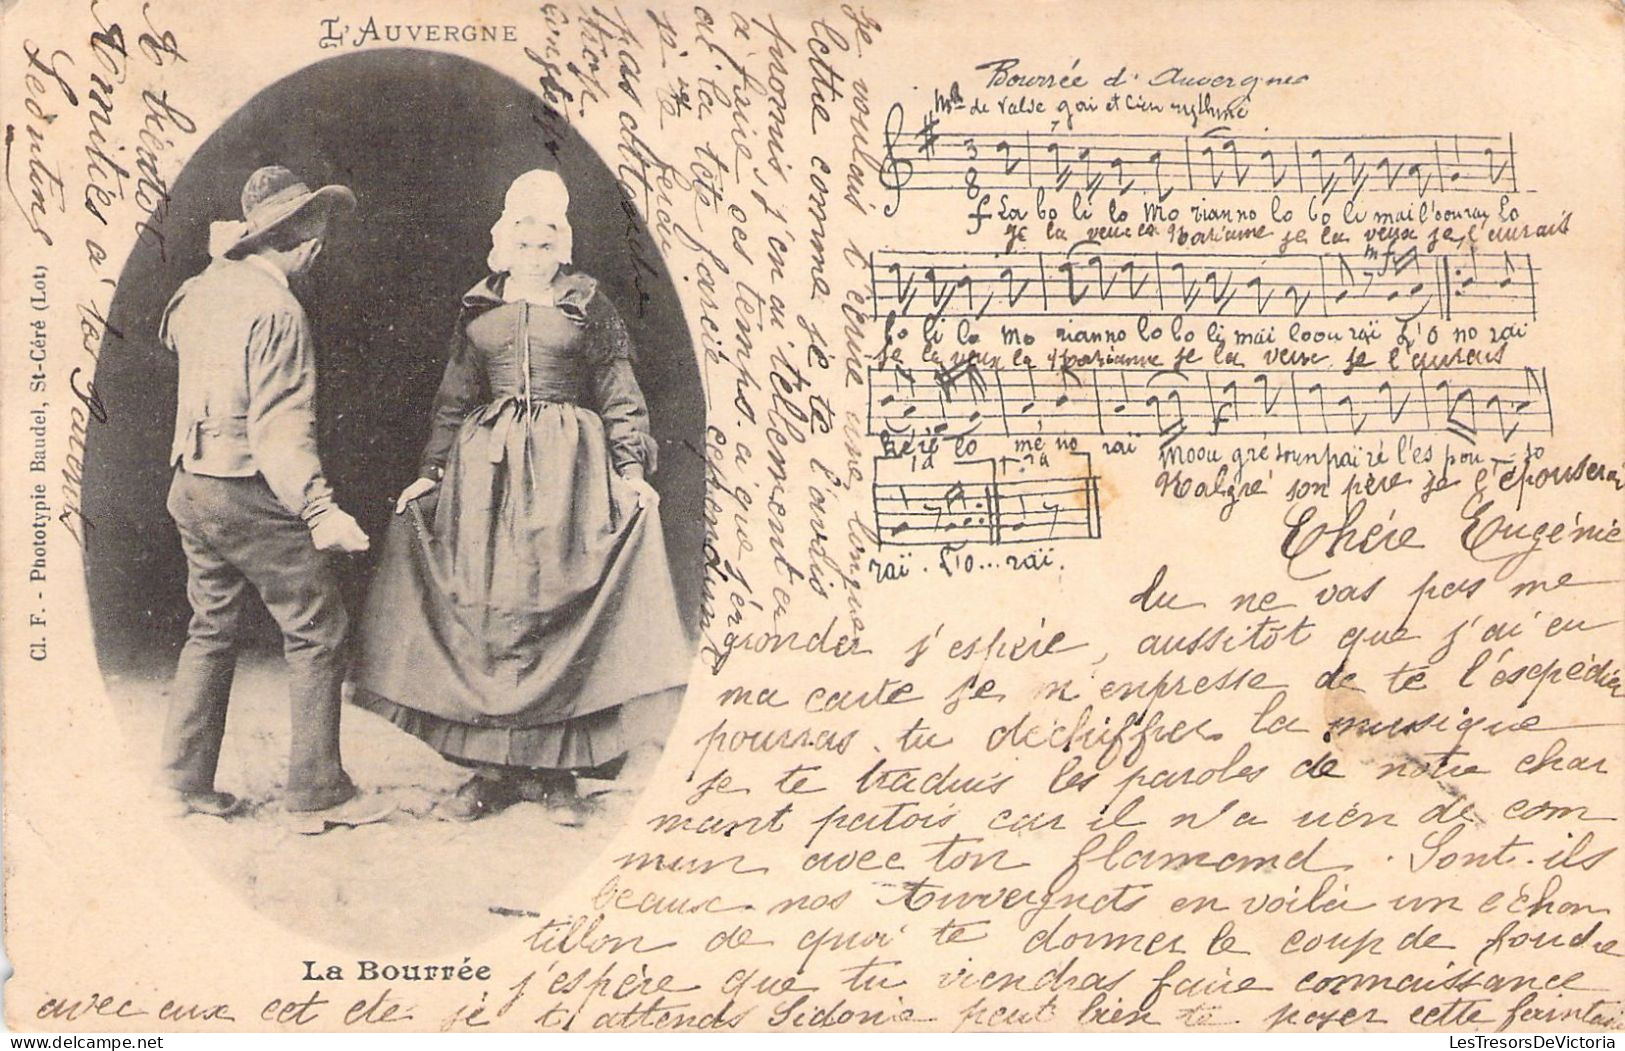 L'AUVERGNE
Bourrée d'Auvergne
de Valse gai et bien rythmé
3
8
f La bo li lo Mo rianno lo bo li mai l'oouray Lo
je la veux la Marianne je la veux je l'aurais
mf
bo li lo Mo rianno lo bo li mai loou raï L'o no raï
je la veux la Marianne je la veux je l'aurais
f
lo mé no raï Moou gré soun païré l'es pou
Malgré son père je l'épouserai
1a
2a
raï. L'o... raï.
Chère Eugénie
tu ne vas pas me
gronder j'espère, aussitôt que j'ai eu
ma carte je m'enpresse de te l'éxpédier
pourras tu déchiffrer la musique
je te traduis les paroles de notre char
mant patois car il n'a rien de com
mun avec ton flamand. Sont-ils
beaux nos Auvergnats en voila un échan
tillon de quoi te donner le coup de foudre
j'espère que tu viendras faire connaissance
avec eux cet été je t'attends Sidonie peut bien te payer cette fantaisie
Je voulais t'écrire une longue
lettre comme je te l'avais
promis, j'en ai tellement eu
à faire ces temps-ci que j'en
ai la tête farcie cependant
pas
A bientôt
Amitiés à tes parents
La Bourrée
Cl. F. - Phototypie Baudel, St-Céré (Lot)
LesTresorsDeVictoria
www.delcampe.net